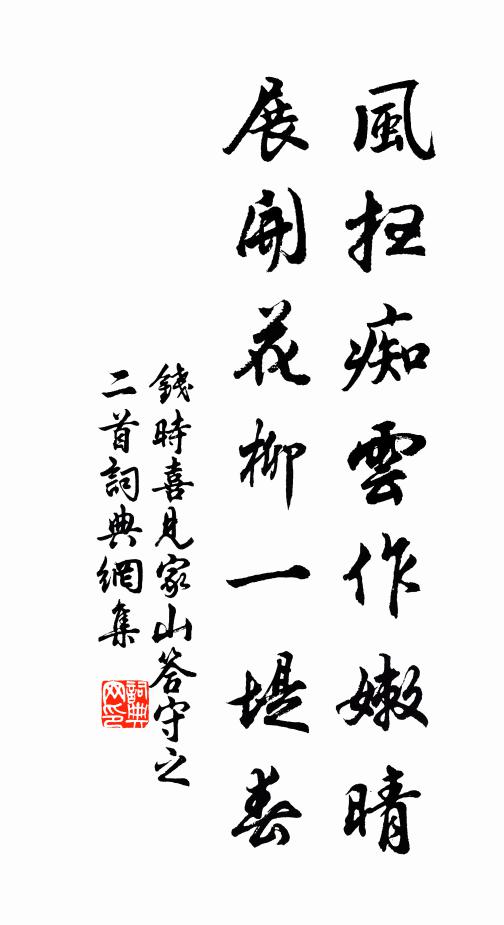 風狂痴雲作嫩晴
展開花柳一堤春
錢時喜見家山答守之
二首詞典網集
詞典
网印